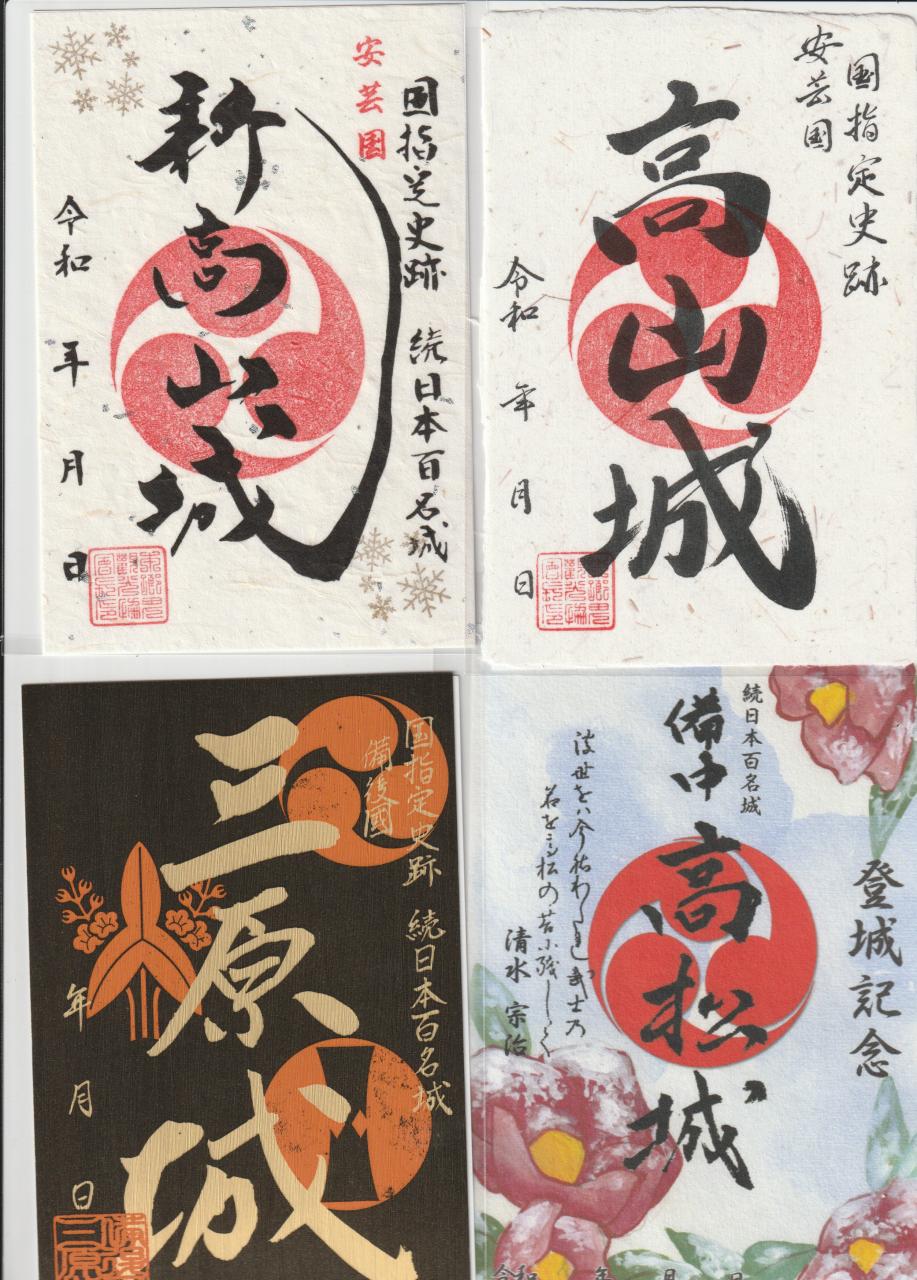 国指定史跡 続日本百名城
安芸国
新高山城
令和 年 月 日
国指定史跡
安芸国
高山城
令和 年 月 日
国指定史跡 続日本百名城
備後國
三原城
年 月 日
続日本百名城
登城記念
備中高松城
浮世をハ今社わたれ武士乃
名を高松の苔小残しくて
清水 宗治
令和 年 月 日